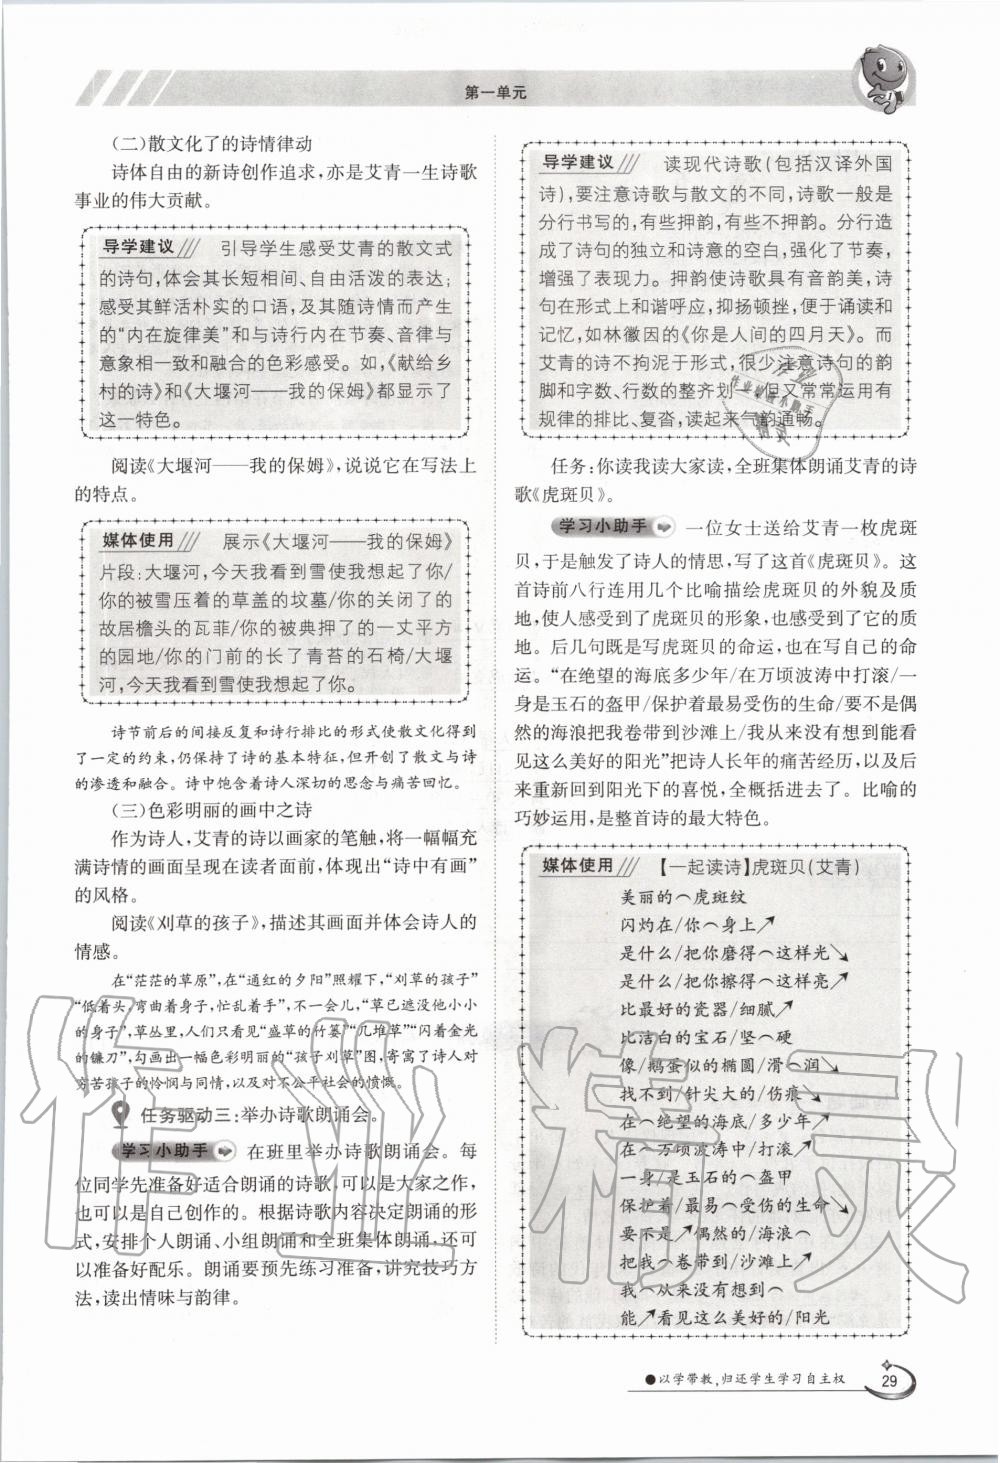 第一单元
(二)散文化了的诗情律动
诗体自由的新诗创作追求,亦是艾青一生诗歌
事业的伟大贡献。
导学建议 引导学生感受艾青的散文式
的诗句,体会其长短相间、自由活泼的表达;
感受其鲜活朴实的口语,及其随诗情而产生
的“内在旋律美”和与诗行内在节奏、音律与
意象相一致和融合的色彩感受。如,《献给乡
村的诗》和《大堰河——我的保姆》都显示了
这一特色。
阅读《大堰河——我的保姆》,说说它在写法上
的特点。
媒体使用 展示《大堰河——我的保姆》
片段:大堰河,今天我看到雪使我想起了你/
你的被雪压着的草盖的坟墓/你的关闭了的
故居檐头的瓦菲/你的被典押了的一丈平方
的园地/你的门前的长了青苔的石椅/大堰
河,今天我看到雪使我想起了你。
诗节前后的间接反复和诗行排比的形式使散文化得到
了一定的约束,仍保持了诗的基本特征,但开创了散文与诗
的渗透和融合。诗中饱含着诗人深切的思念与痛苦回忆。
(三)色彩明丽的画中之诗
作为诗人,艾青的诗以画家的笔触,将一幅幅充
满诗情的画面呈现在读者面前,体现出“诗中有画”
的风格。
阅读《刈草的孩子》,描述其画面并体会诗人的
情感。
在“茫茫的草原”,在“通红的夕阳”照耀下,“刈草的孩子”
“低着头,弯曲着身子,忙乱着手”,不一会儿,“草已遮没他小小
的身子”,草丛里,人们只看见“盛草的竹篓”“几堆草”“闪着金光
的镰刀”,勾画出一幅色彩明丽的“孩子刈草”图,寄寓了诗人对
穷苦孩子的怜悯与同情,以及对不公平社会的愤慨。
任务驱动三:举办诗歌朗诵会。
学习小助手 在班里举办诗歌朗诵会。每
位同学先准备好适合朗诵的诗歌,可以是大家之作,
也可以是自己创作的。根据诗歌内容决定朗诵的形
式,安排个人朗诵、小组朗诵和全班集体朗诵,还可
以准备好配乐。朗诵要预先练习准备,讲究技巧方
法,读出情味与韵律。
导学建议 读现代诗歌(包括汉译外国
诗),要注意诗歌与散文的不同,诗歌一般是
分行书写的,有些押韵,有些不押韵。分行造
成了诗句的独立和诗意的空白,强化了节奏,
增强了表现力。押韵使诗歌具有音韵美,诗
句在形式上和谐呼应,抑扬顿挫,便于诵读和
记忆,如林徽因的《你是人间的四月天》。而
艾青的诗不拘泥于形式,很少注意诗句的韵
脚和字数、行数的整齐划一,但又常常运用有
规律的排比、复沓,读起来气韵通畅。
任务:你读我读大家读,全班集体朗诵艾青的诗
歌《虎斑贝》。
学习小助手 一位女士送给艾青一枚虎斑
贝,于是触发了诗人的情思,写了这首《虎斑贝》。这
首诗前八行连用几个比喻描绘虎斑贝的外貌及质
地,使人感受到了虎斑贝的形象,也感受到了它的质
地。后几句既是写虎斑贝的命运,也在写自己的命
运。“在绝望的海底多少年/在万顷波涛中打滚/一
身是玉石的盔甲/保护着最易受伤的生命/要不是偶
然的海浪把我卷带到沙滩上/我从来没有想到能看
见这么美好的阳光”把诗人长年的痛苦经历,以及后
来重新回到阳光下的喜悦,全概括进去了。比喻的
巧妙运用,是整首诗的最大特色。
媒体使用 【一起读诗】虎斑贝(艾青)
美丽的⌒虎斑纹
闪灼在/你⌒身上↗
是什么/把你磨得⌒这样光↘
是什么/把你擦得⌒这样亮↗
比最好的瓷器/细腻↗
比洁白的宝石/坚⌒硬
像/鹅蛋似的椭圆/滑⌒润↘
找不到/针尖大的/伤痕↘
在⌒绝望的海底/多少年↗
在⌒万顷波涛中/打滚↗
一身/是玉石的⌒盔甲
保护着/最易⌒受伤的生命↘
要不是↗偶然的/海浪⌒
把我⌒卷带到/沙滩上↗
我⌒从来没有想到⌒
能↗看见这么美好的/阳光
●以学带教,归还学生学习自主权
29
作业精灵